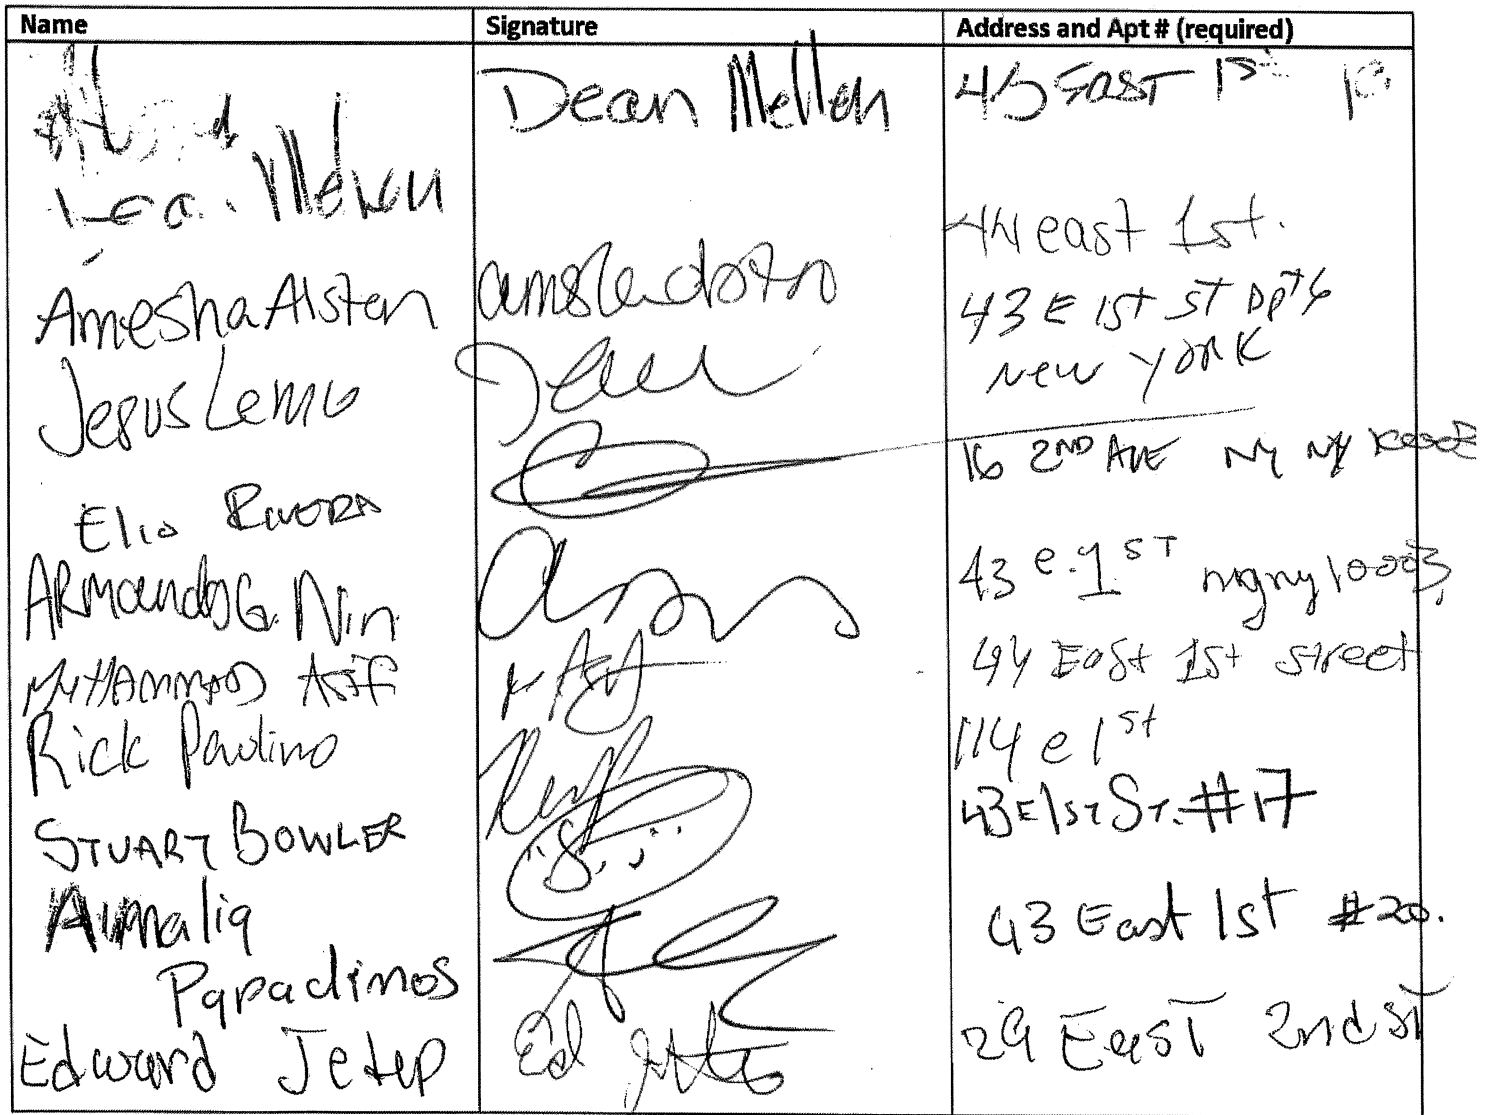 Name Signature Address and Apt # (required)
Dean Mellen 43 EAST 1st
Amesha Alsten 44 east 1st.
Jesus Lemo 43 E 1st ST Apt 6
New YORK
Elio Rivera 16 2ND AVE NY NY 10003
ARmando G. Nin 43 e. 1ST nyny 10003,
MUHAMMAD Asif 44 East 1st street
Rick Paulino 114 e 1st
STUART BOWLER 43 E 1ST ST. #17
43 East 1st #20.
Papadimos
Edward Jetep Ed 29 EAST 2nd ST